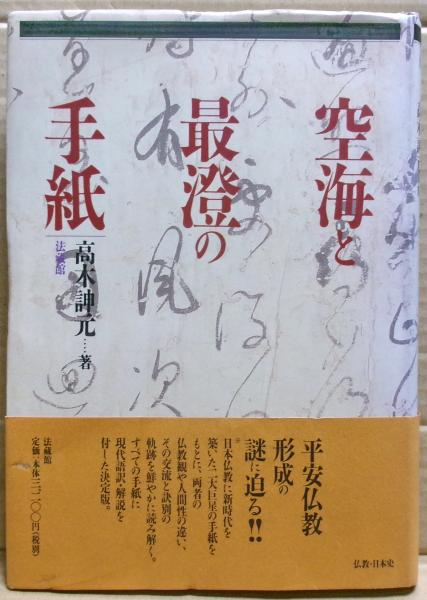 空海と
最澄の
手紙
高木訷元……著
法藏館
平安仏教
形成の
謎に迫る!!
日本仏教に新時代を
築いた二大巨星の手紙を
もとに、両者の
仏教観や人間性の違い、
その交流と訣別の
軌跡を鮮やかに読み解く。
すべての手紙に
現代語訳・解説を
付した決定版。
法藏館
定価:本体三二〇〇円(税別)
仏教・日本史